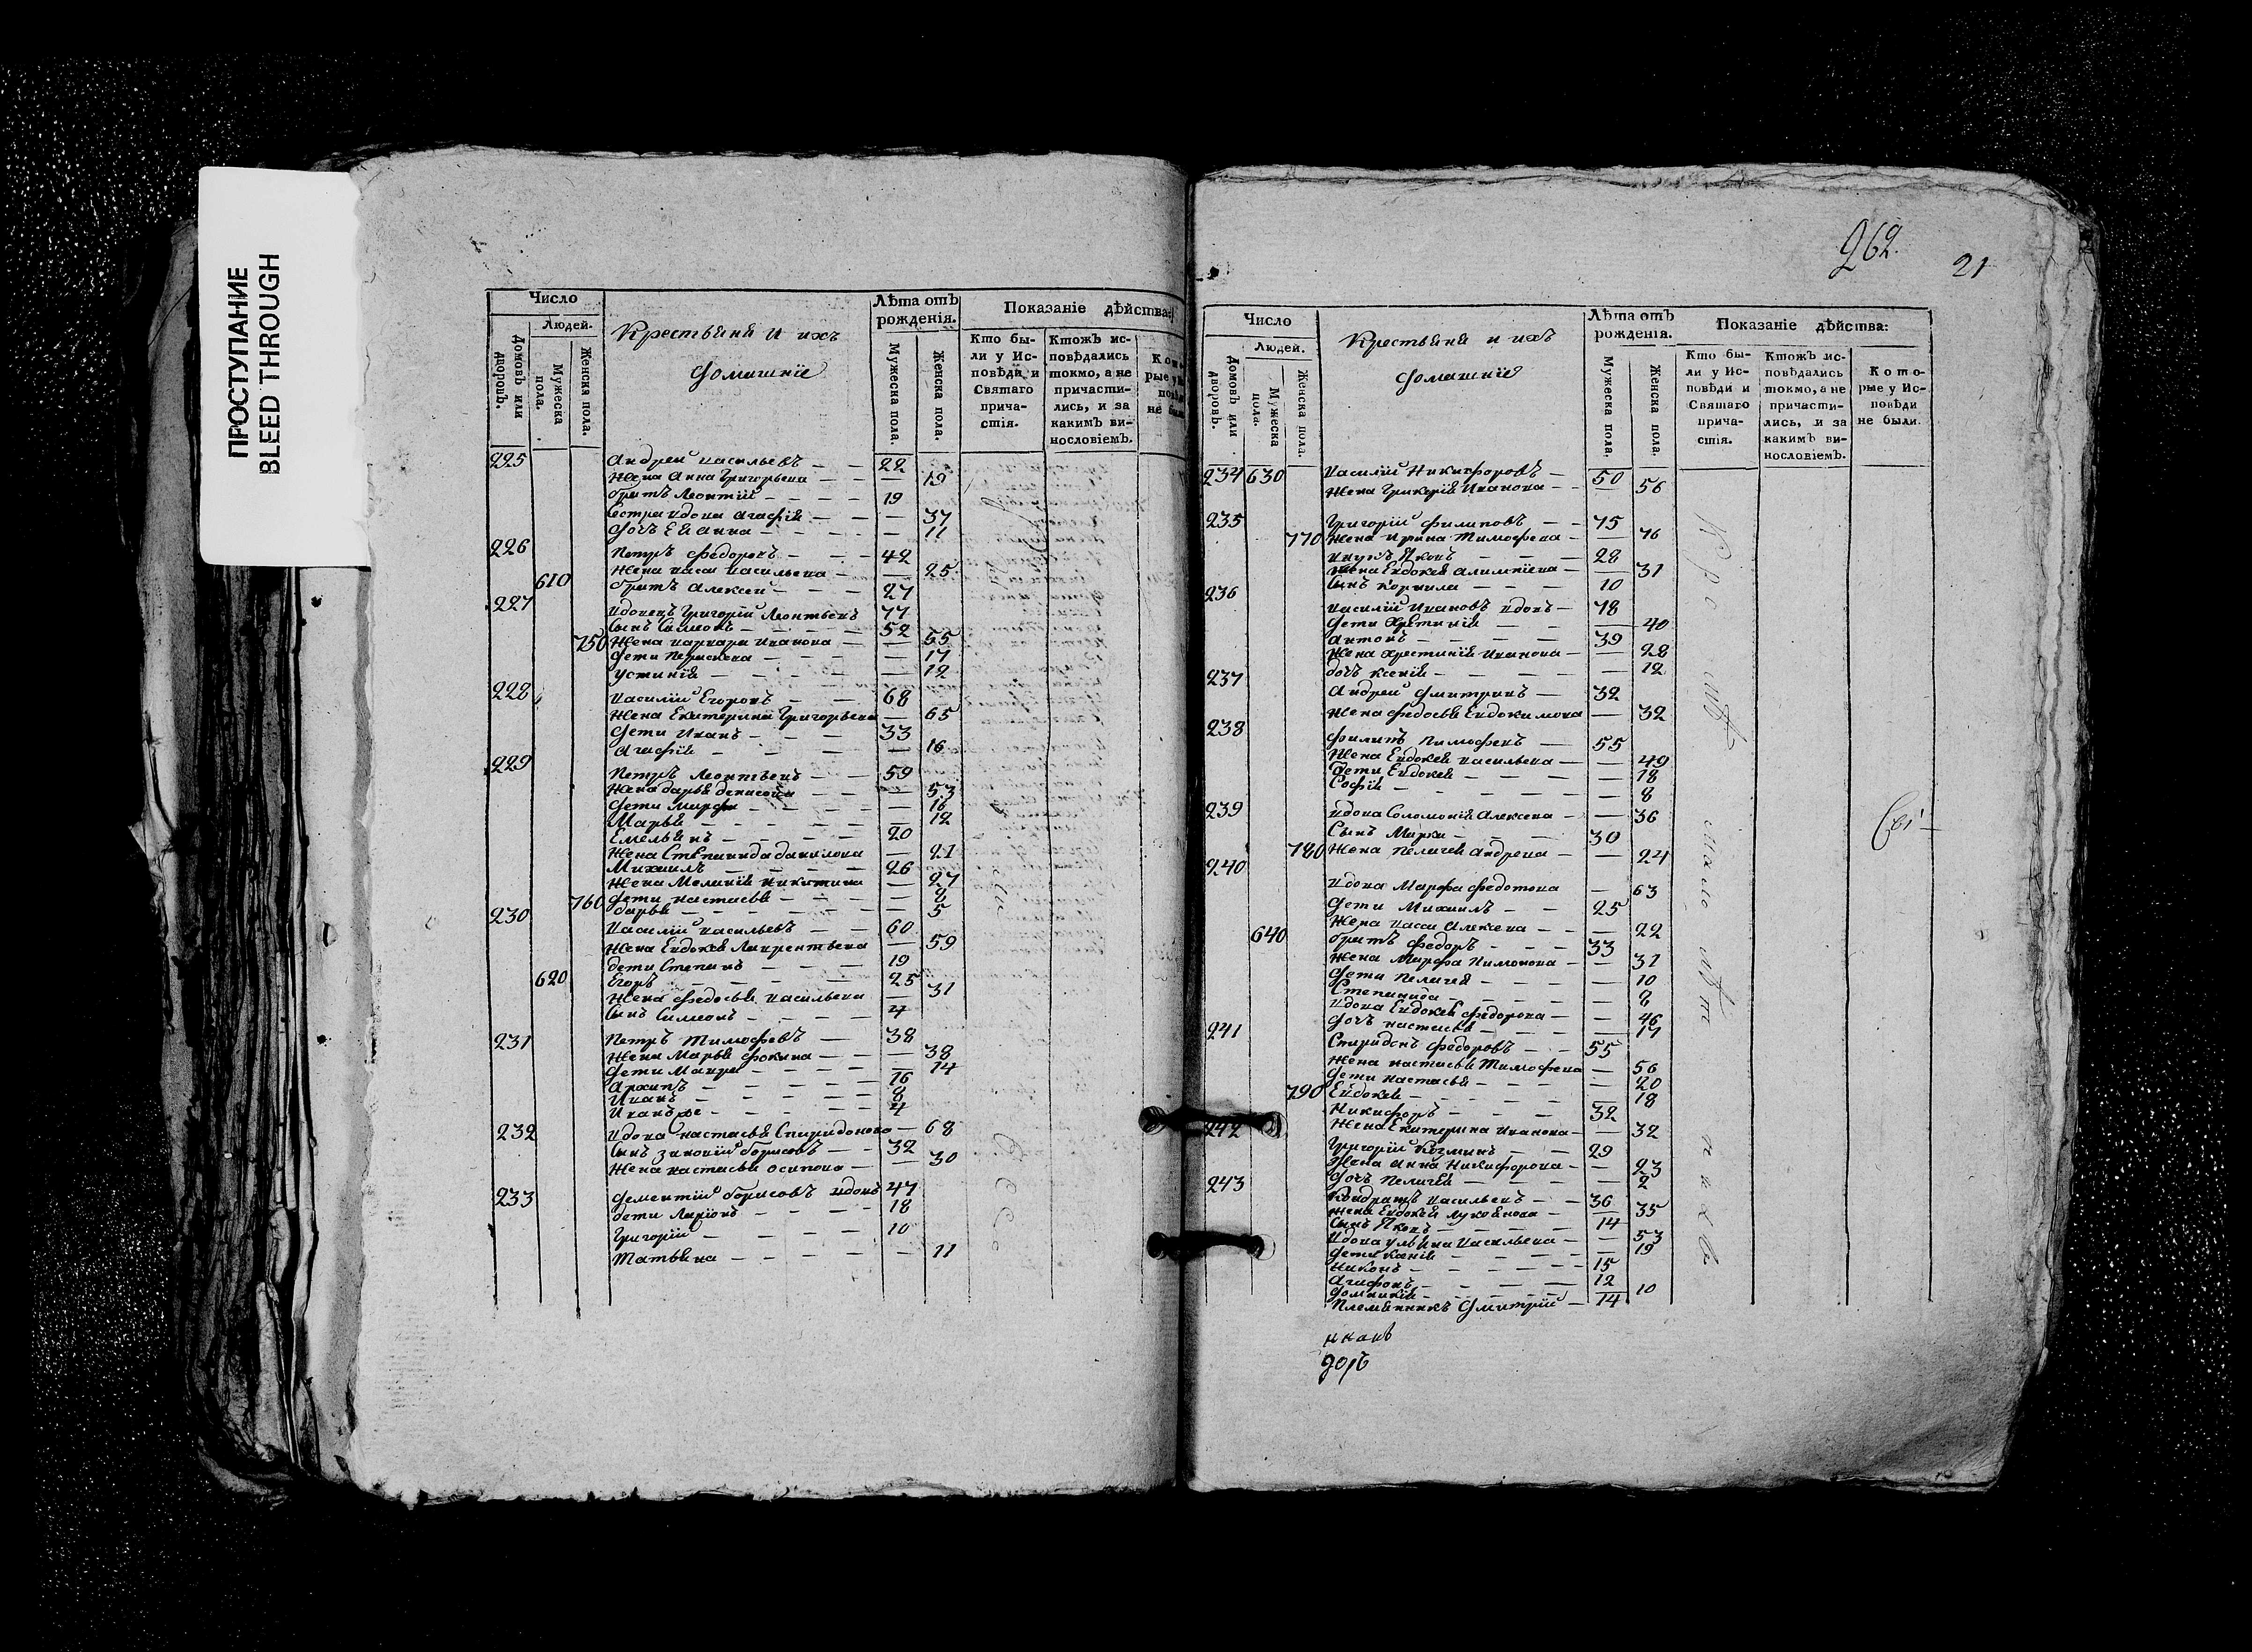 ПРОСТУПАНИЕ
BLEED THROUGH
Число
Людей.
Домовъ или дворовъ.
Мужеска пола.
Женска пола.
Крестьяня и ихъ
домашніе
Лѣта отъ рожденія.
Мужеска пола.
Женска пола.
Показаніе дѣйства:
Кто были у Исповѣди и Святаго причастія.
Ктожъ исповѣдались токмо, а не причастились, и за какимъ винословіемъ.
225 Андреи васильевъ 22
Жена Анна Григорьева 19
братъ Леонтіи 19
Сестра вдова Агафія 37
дочь Ея Анна 11
226 Петръ федоровъ 42
Жена васса васильева 25
610 братъ Алексеи 27
227 вдовецъ Григоріи Леонтьевъ 77
Сынъ Симеонъ 52
750 Жена варвара Иванова 55
дети Парасковa 17
устинія 12
228 Василіи Егоровъ 68
Жена Екатерина Григорьева 65
дети Иванъ 33
Агафія 16
229 Петръ Леонтьевъ 59
Жена дарья денисова 53
дети Марфа 16
Марья 12
Емельянъ 20
Жена Степанида данилова 21
Михаилъ 26
Жена Меланія Никитина 27
760 дети настасья 8
дарья 5
230 Василіи васильевъ 60
Жена Евдокея Лаврентьева 59
дети Степанъ 19
620 Егоръ 25
Жена федосья васильева 31
Сынъ Симеонъ 4
231 Петръ Тимофевъ 38
Жена Марья фокина 38
дети Мавра 14
Архипъ 16
Иванъ 8
Иванъ же 4
232 вдова настасья Спиридонова 68
Сынъ Зиновіи борисовъ 32
Жена настасья осипова 30
233 дементіи борисовъ вдовъ 47
дети Ларіонъ 18
Григоріи 10
Татьяна 11
262.
21
Число
Людей.
Домовъ или дворовъ.
Мужеска пола.
Женска пола.
Крестьяня и ихъ
домашніе
Лѣта отъ рожденія.
Мужеска пола.
Женска пола.
Показаніе дѣйства:
Кто были у Исповѣди и Святаго причастія.
Ктожъ исповѣдались токмо, а не причастились, и за какимъ винословіемъ.
Которые у Исповѣди не были.
234 630 Василіи Никифоровъ 50
Жена Гликерія Иванова 56
235 Григоріи филиповъ 75
770 Жена Ирина Тимофева 76
внукъ Яковъ 28
Жена Евдокея 31
Сынъ Корнила 10
236 василіи Ивановъ вдовъ 78
дети Хрѣтинія 40
Антонъ 39
Жена Хрестинія Иванова 28
дочь Ксенія 12
237 Андреи дмитріевъ 32
Жена федосья Евдокимова 32
238 филипъ Тимофевъ 55
Жена Евдокея васильева 49
дети Евдокея 18
Софія 8
239 вдова Соломонія Алексева 36
Сынъ Марка 30
780 Жена Пелагея Андрева 24
240 вдова Марфа федотова 63
дети Михаилъ 25
Жена васса Алексева 22
640 братъ федоръ 33
Жена Марфа 31
дети Пелагея 10
Степанида 8
вдова Евдокея федорова 46
дочь настасья 17
241 Спиридонъ федоровъ 55
Жена настасья Тимофева 56
дети настасья 20
790 Евдокея 18
Никифоръ 32
Жена Екатерина Иванова 32
242 Григоріи Козминъ 29
Жена Анна Никифорова 23
дочь Пелагея 2
243 Кондратъ васильевъ 36
Жена Евдокея Лукоянова 35
Сынъ Яковъ 14
вдова ульяна васильева 53
дети 19
Никонъ 15
Агафонъ 12
домникія 10
Племянникъ дмитріи 14